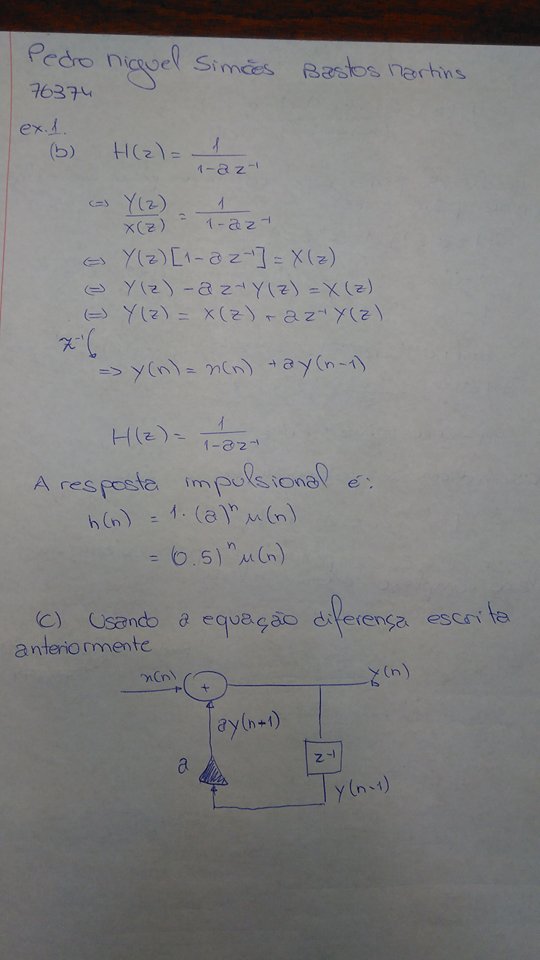 Pedro Miguel Simões Bastos Martins
76374
ex.1.
(b) H(z) = 1/(1-az⁻¹)
⇔ Y(z)/X(z) = 1/(1-az⁻¹)
⇔ Y(z)[1-az⁻¹] = X(z)
⇔ Y(z) - az⁻¹Y(z) = X(z)
⇔ Y(z) = X(z) + az⁻¹Y(z)
z⁻¹
⇒ y(n) = x(n) + ay(n-1)
H(z) = 1/(1-az⁻¹)
A resposta impulsional é:
h(n) = 1·(a)ⁿ μ(n)
= (0.5)ⁿ μ(n)
(c) Usando a equação diferença escrita
anteriormente
x(n) + y(n)
ay(n+1)
a z⁻¹
y(n-1)